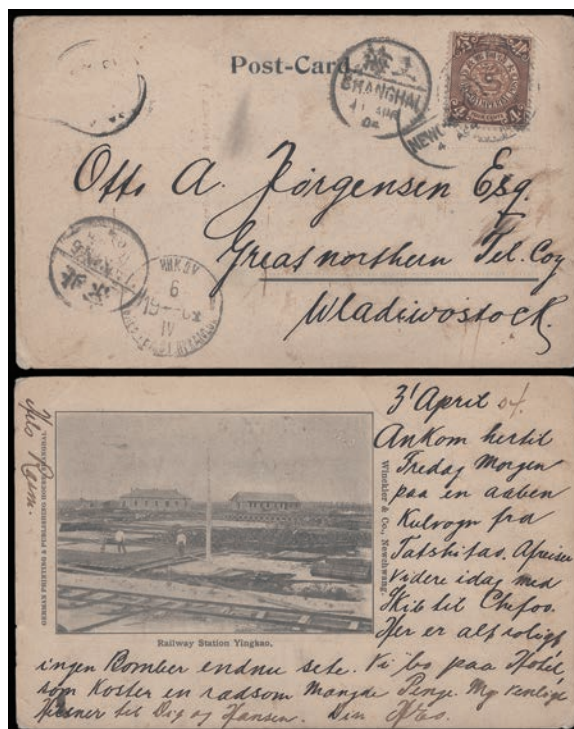 Post-Card.
SHANGHAI
NEWC
Otto A. Jörgensen Esq.
Great northern Tel. Coy
Wladiwostock.
3' April 04.
Ankom hertil
Fredag Morgen
paa en aaben
Kulvogn fra
Tatshitao. Afreiser
videre idag med
Skib til Chefoo.
Her er alt roligt
ingen Bomber endnu sete. Vi bo paa Hotel,
som koster en rædsom Mangde Penge. Mg venlige
Hilsner til Dig og Hansen. Din
GERMAN PRINTING & PUBLISHING HOUSE, SHANGHAI
Winckler & Co., Newchwang.
Railway Station Yingkao.